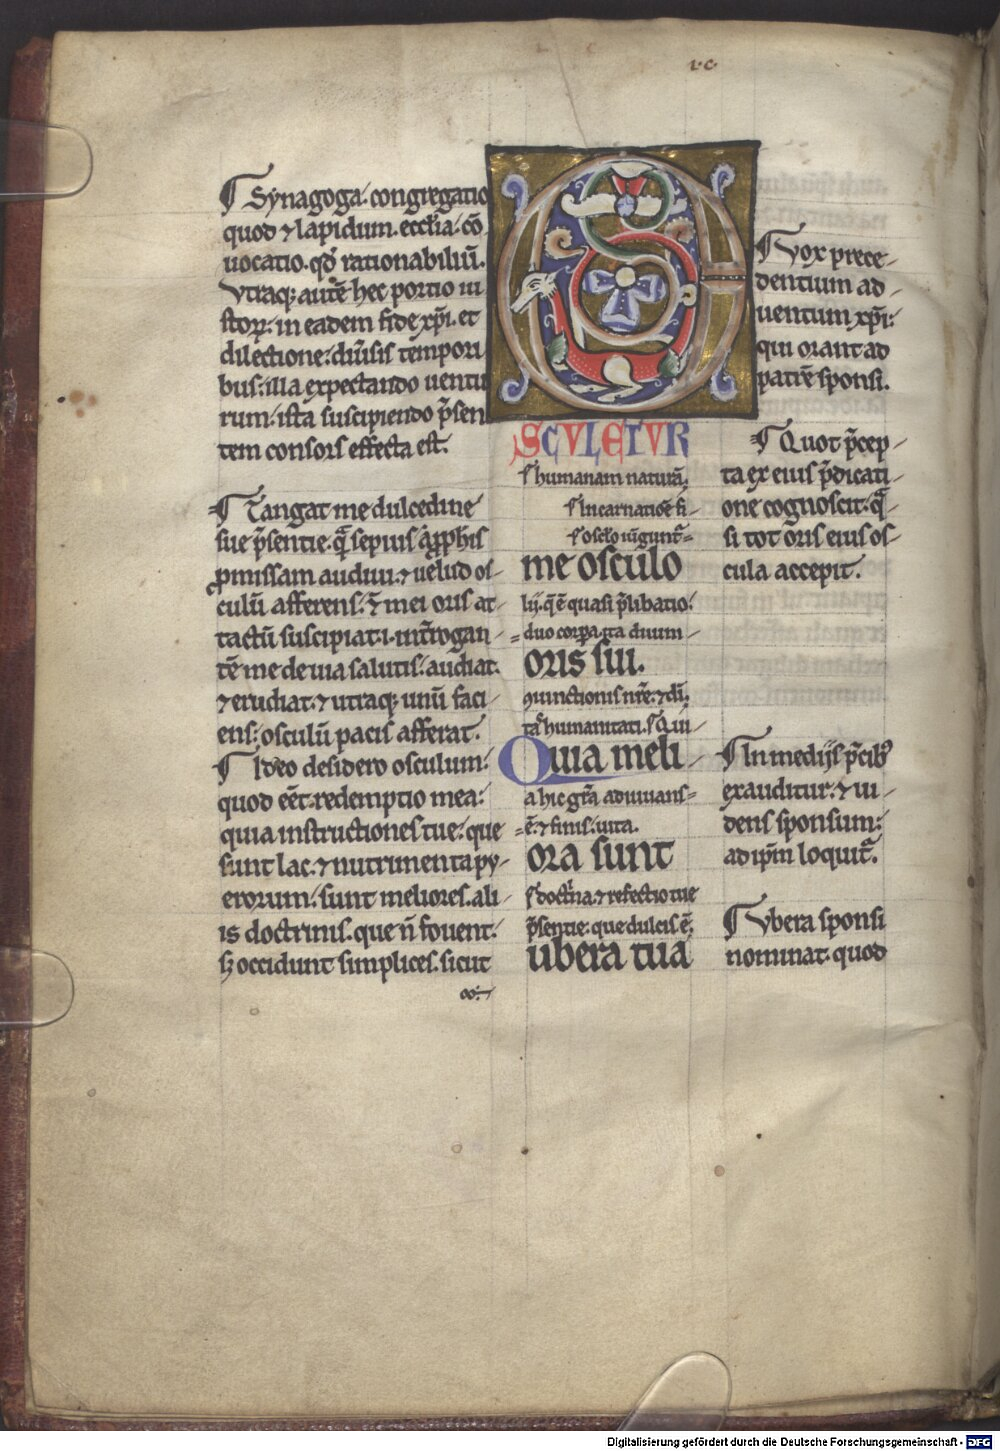 v·c·
¶ Synagoga· congregatio
quod ⁊ lapidum. ecclia· cō
uocatio· qđ rationabiliū.
Vtraq; autē hec portio iu
storꝝ: in eadem fide xp̄i· et
dilectione: diuīsis tempori
bus: illa expectando uentu
rum· ista suscipiendo p̄sen
tem consors effecta est.
¶ Tangat me dulcedine
sue p̄sentie· quā sepius a ꝓphis
ꝓmissam audiui· ⁊ uelud os-
culū afferens· mei oris at-
tactū suscipiat· i· int̄rogan-
tē me de uia salutis· audiat·
⁊ erudiat· ⁊ utraq; unū faci-
ens: osculū pacis afferat.
¶ Ideo desidero osculum:
quod eēt redemptio mea:
quia instructiones tue: que
sunt lac· ⁊ nutrimenta py-
erorum: sunt meliores· ali-
is doctrinis· que ñ fouent·
sꝫ occidunt simplices· sicut
O
SCVLETVR
humanam naturā
incarnatiōe fi-
me osculo
lij· q̄ ē quasi p̄libatio·
duo corpora· ita diuin-
oris sui.
9iunctionis nr̄e· ⁊ di-
humanitati· Qui-
Quia meli
a hic gr̄a adiuuans-
ē· ⁊ finis· uita.
ora sunt
doct̄na· ⁊ refectio tue
p̄sentie: que dulcis ē·
ubera tua
¶ Vox prece-
dentium ad-
uentum xp̄i:
qui orant ad
patrē sponsi.
¶ Quot p̄cep-
ta ex eius p̄dicati-
one cognoscit· qua
si tot oris eius os-
cula accepit.
¶ In medijs p̄cib9
exauditur· ⁊ ui-
dens sponsum:
ad ip̄m loquit̄.
¶ Vbera sponsi
nominat· quod
Digitalisierung gefördert durch die Deutsche Forschungsgemeinschaft - DFG